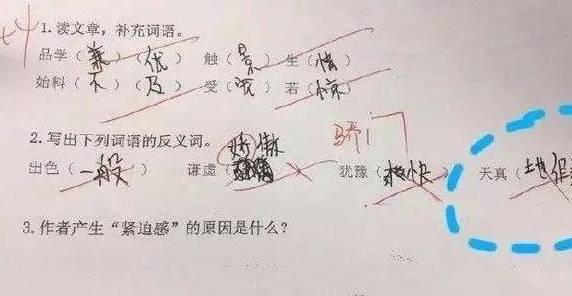 +4
1.读文章,补充词语。
品学(兼)(优) 触(景)生(情)
始料(不)(及) 受(宠)若(惊)
2.写出下列词语的反义词。
骄
出色(一般) 谦虚(娇傲) 犹豫(爽快) 天真(地
3.作者产生“紧迫感”的原因是什么?